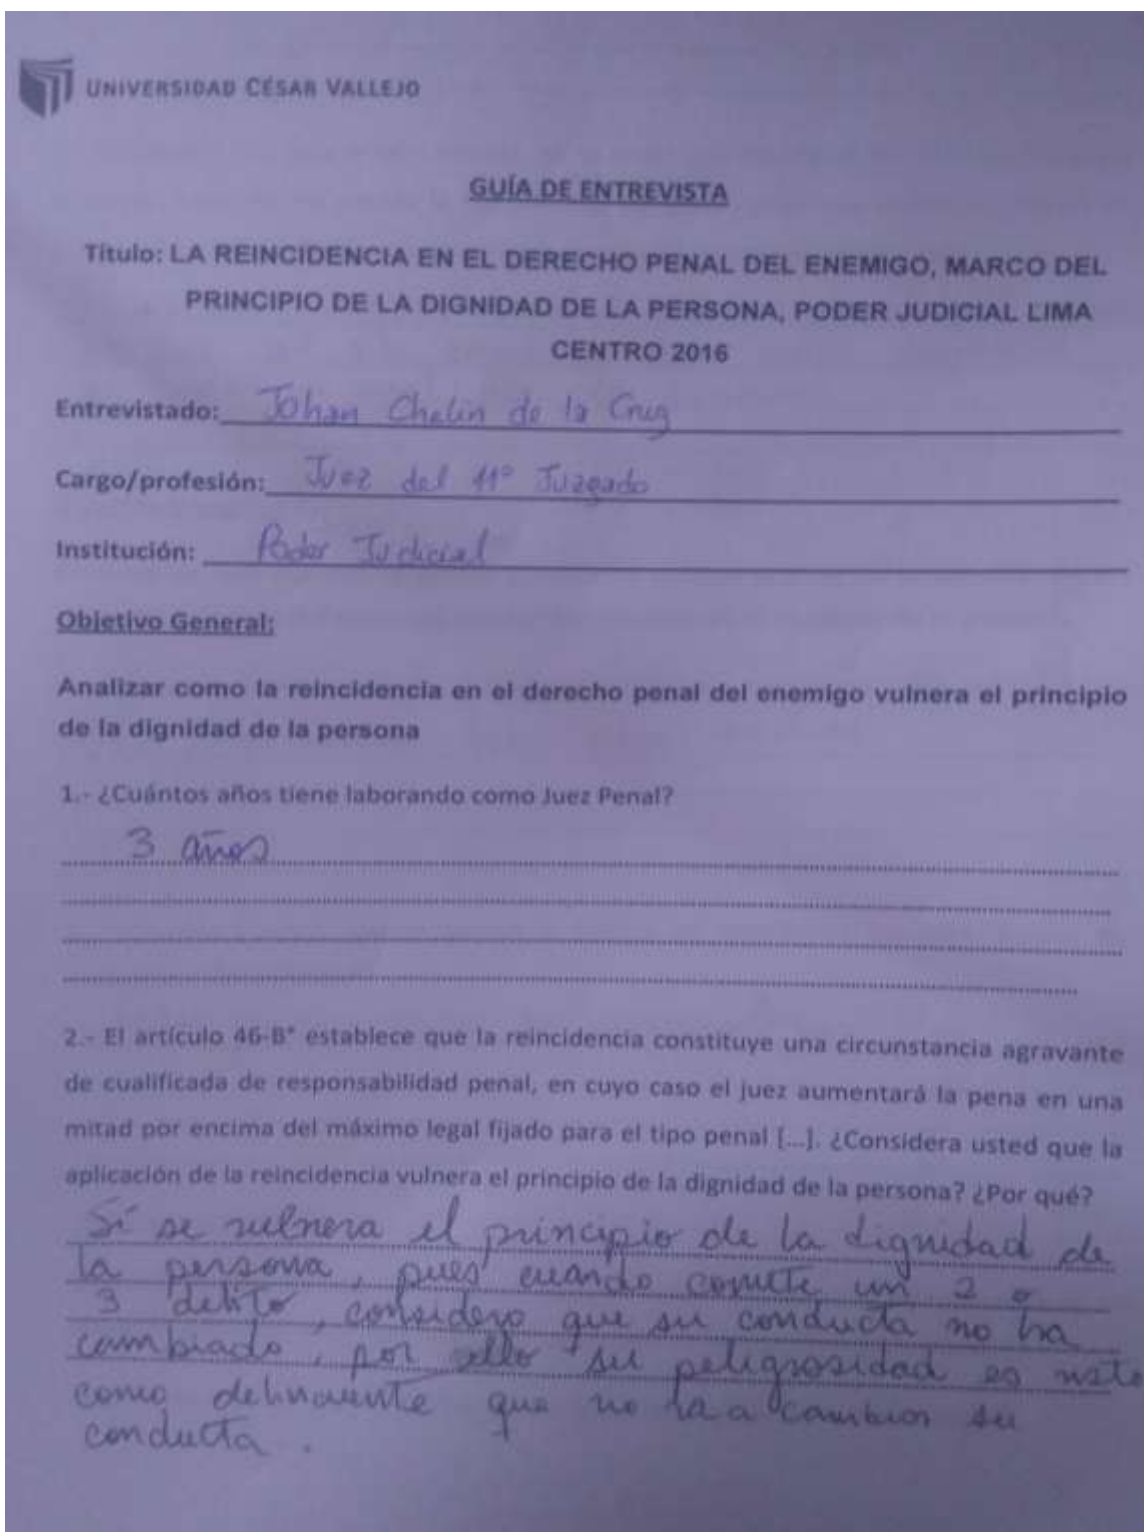 UNIVERSIDAD CÉSAR VALLEJO
GUÍA DE ENTREVISTA
Título: LA REINCIDENCIA EN EL DERECHO PENAL DEL ENEMIGO, MARCO DEL
PRINCIPIO DE LA DIGNIDAD DE LA PERSONA, PODER JUDICIAL LIMA
CENTRO 2016
Entrevistado: Johan de la Cruz
Cargo/profesión: Juez del 11° Juzgado
Institución: Poder Judicial
Objetivo General:
Analizar como la reincidencia en el derecho penal del enemigo vulnera el principio
de la dignidad de la persona
1.- ¿Cuántos años tiene laborando como Juez Penal?
3 años
2.- El artículo 46-B° establece que la reincidencia constituye una circunstancia agravante
de cualificada de responsabilidad penal, en cuyo caso el juez aumentará la pena en una
mitad por encima del máximo legal fijado para el tipo penal [...]. ¿Considera usted que la
aplicación de la reincidencia vulnera el principio de la dignidad de la persona? ¿Por qué?
Sí se vulnera el principio de la dignidad de
la persona, pues cuando comete un 2 o
3 delito, considero que su conducta no ha
cambiado, por ello su peligrosidad es
como delincuente que no cambiar su
conducta.